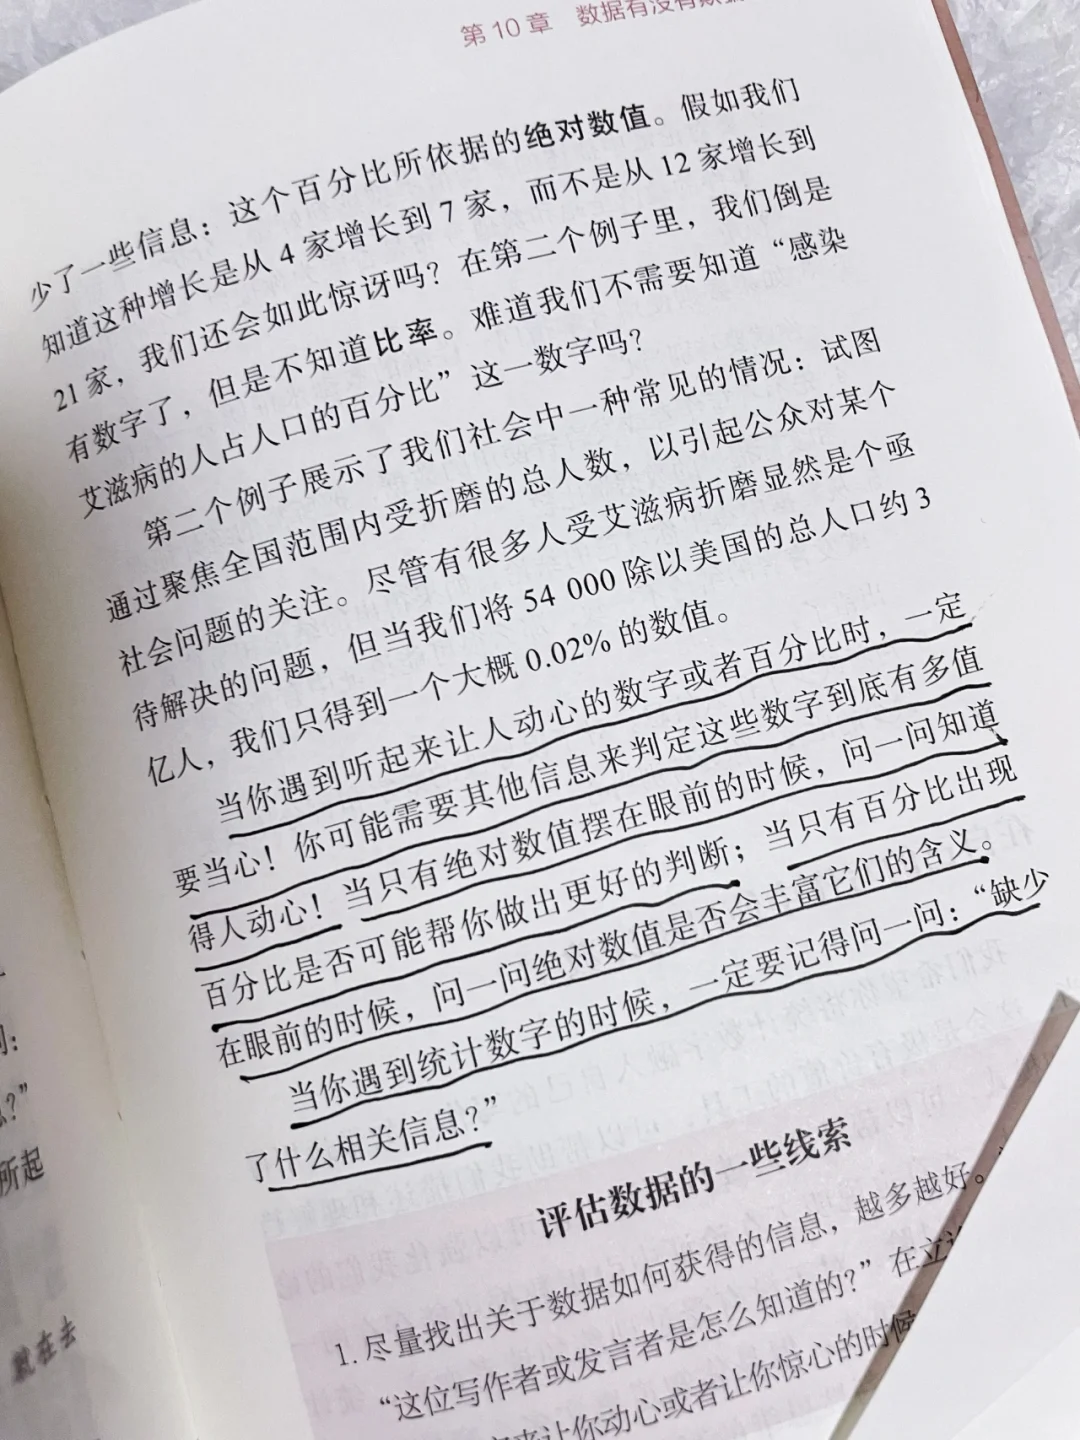 第 10 章 数据有没有欺
少了一些信息：这个百分比所依据的绝对数值。假如我们
知道这种增长是从 4 家增长到 7 家，而不是从 12 家增长到
21 家，我们还会如此惊讶吗？在第二个例子里，我们倒是
有数字了，但是不知道比率。难道我们不需要知道“感染
艾滋病的人占人口的百分比”这一数字吗？
第二个例子展示了我们社会中一种常见的情况：试图
通过聚焦全国范围内受折磨的总人数，以引起公众对某个
社会问题的关注。尽管有很多人受艾滋病折磨显然是个亟
待解决的问题，但当我们将 54 000 除以美国的总人口约 3
亿人，我们只得到一个大概 0.02% 的数值。
当你遇到听起来让人动心的数字或者百分比时，一定
要当心！你可能需要其他信息来判定这些数字到底有多值
得人动心！当只有绝对数值摆在眼前的时候，问一问知道
百分比是否可能帮你做出更好的判断；当只有百分比出现
在眼前的时候，问一问绝对数值是否会丰富它们的含义。
当你遇到统计数字的时候，一定要记得问一问：“缺少
了什么相关信息？”
评估数据的一些线索
1. 尽量找出关于数据如何获得的信息，越多越好。
“这位写作者或发言者是怎么知道的？”在立
来让你动心或者让你惊心的时候
所起
就在去